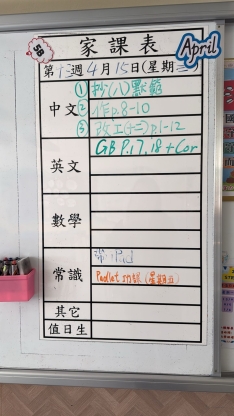 5B
家課表
April
第13週4月15日(星期三)
中文
① 抄(八)默範
② 作p.8-10
③ 改工(十二)p.1-12
英文
GB P.17,18 + Cor
數學
常識
常 iPad
Padlet (星期五)
其它
值日生